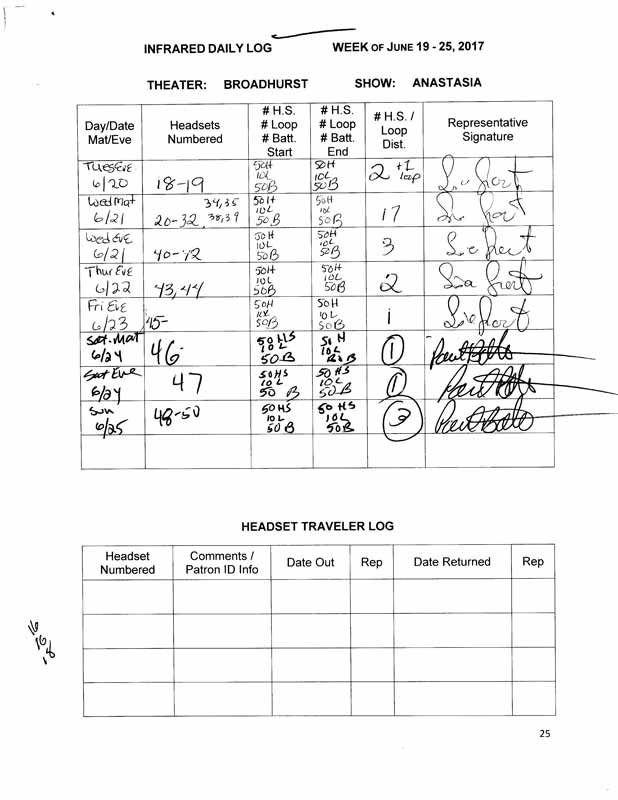 INFRARED DAILY LOG WEEK OF JUNE 19 - 25, 2017
THEATER: BROADHURST SHOW: ANASTASIA
Day/Date Mat/Eve Headsets Numbered # H.S. # Loop # Batt. Start # H.S. # Loop # Batt. End # H.S. / Loop Dist. Representative Signature
Tues Eve 6/20 18-19 50H 10L 50B 50H 10L 50B 2 +1 loop
Wed Mat 6/21 20-32, 34,35 38,39 50H 10L 50B 50H 10L 50B 17
Wed Eve 6/21 40-42 50H 10L 50B 50H 10L 50B 3
Thur Eve 6/22 43,44 50H 10L 50B 50H 10L 50B 2
Fri Eve 6/23 45- 50H 10L 50B 50H 10L 50B 1
Sat. Mat 6/24 46 50 HS 10 L 50 B 10L 1
Sat Eve 6/24 47 50HS 10L 50 B 50 HS 10L 50B 1
Sun 6/25 48-50 50HS 10L 50B 50 HS 10L 50B 3
HEADSET TRAVELER LOG
Headset Numbered Comments / Patron ID Info Date Out Rep Date Returned Rep
16
16
18
25